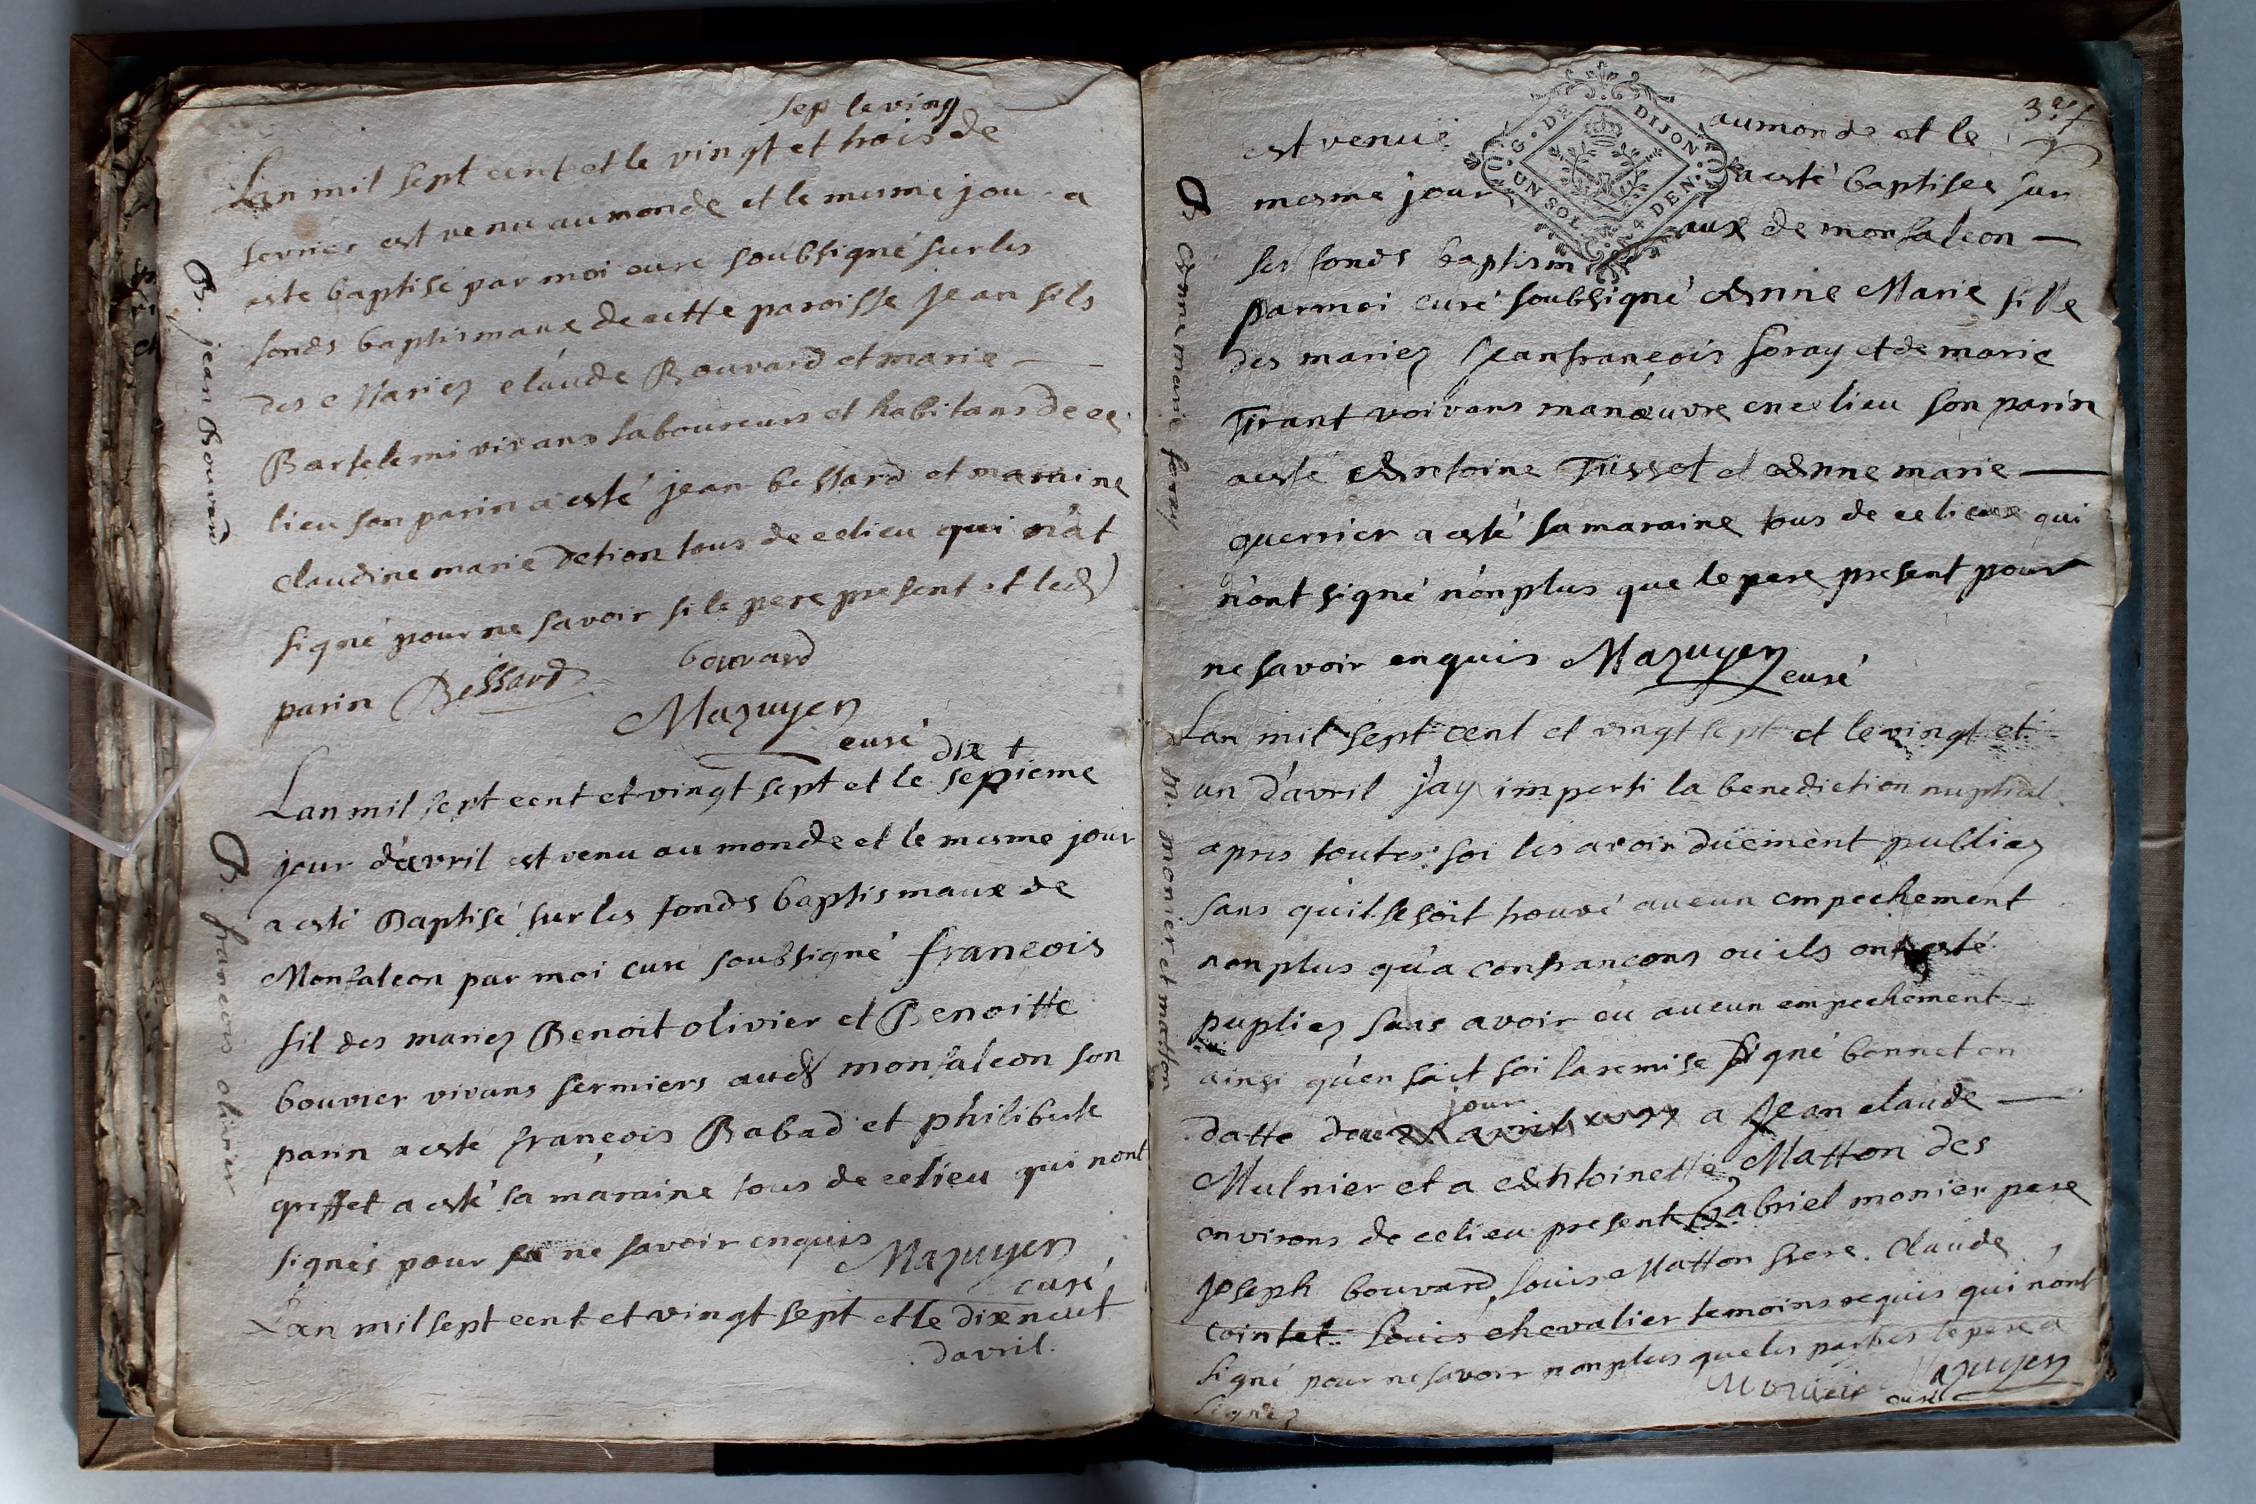 sep le ving
Lan mil sept cent et le vingt et trois de
fevrier est venu au monde et le mesme jou a
este baptisé par moi curé soubsigné sur les
fonds baptismaux de cette paroisse jean fils
des Mariez claude Bouvard et marie —
Bartelemi vivans laboureurs et habitans de ce
lieu son parin a esté jean bessard et maraine
claudine marie detion tous de celieu qui n'at
signé pour ne savoir si le pere present et led
parin Bessard bouvard
Mazuyer
curé
B. jean Bouvard
dix +
Lan mil sept cent et vingt sept et le septieme
jour d'avril est venu au monde et le mesme jour
a esté Baptisé sur les fonds baptismaux de
Monfalcon par moi curé soubsigné francois
fil des mariez Benoit olivier et Benoitte
bouvier vivans fermiers aud monfalcon son
parin a esté francois Babad et philiberte
greffet a esté sa maraine tous de celieu qui nont
signés pour ne savoir enquis Mazuyer
curé
B. francois olivier
Lan mil sept cent et vingt sept et le dixneuf
davril.
est venuë au monde et le
mesme jour a esté baptisée sur
les fonds baptism aux de monfalcon —
par moi curé soubsigné Anne Marie fille
des mariez Jeanfrancois foray et de marie
Tirant voivans manœuvre en celieu son parin
a esté Antoine Tissot et Anne marie —
guerrier a esté sa maraine tous de celieux qui
n'ont signé n'onplus que le pere present pour
ne savoir enquis Mazuyer
curé
B Anne marie foray
G. DE DIJON
UN SOL 4 DEN
Lan mil sept cent et vingt sept et le vingt et
un d'avril j'ay imperti la benediction nuptial
apres toutes foi les avoir duëment publiez
sans qu'il se soit trouvé aucun empechement
nonplus qu'a confrancons ou ils ont esté
pupliez sans avoir eu aucun empechement
ainsi qu'en fait foi la remise signé bonnet en
jour
datte a Jean claude —
Mulnier et a Antoinette Matton des
environs de celieu present Gabriel monier pere
Joseph bouvard, louis Matton frere. Claude
Cointet. louis chevalier temoins requis qui n'ont
signé pour ne savoir nonplus que les parties le pere a
signez Mazuyer
curé
M. monier et matton